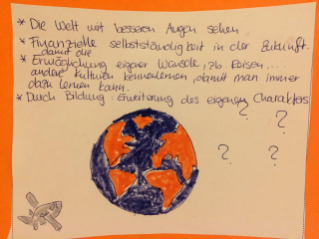 * Die Welt mit besseren Augen sehen
* Finanzielle selbstständigkeit in der Zukunft.
damit die
* Ermöglichung eigener Wünsche, zb Reisen...
andere Kulturen kennenlernen, damit man immer
dazu lernen kann.
* Durch Bildung: Erweiterung des eigenen Charakters
? ?
? ?